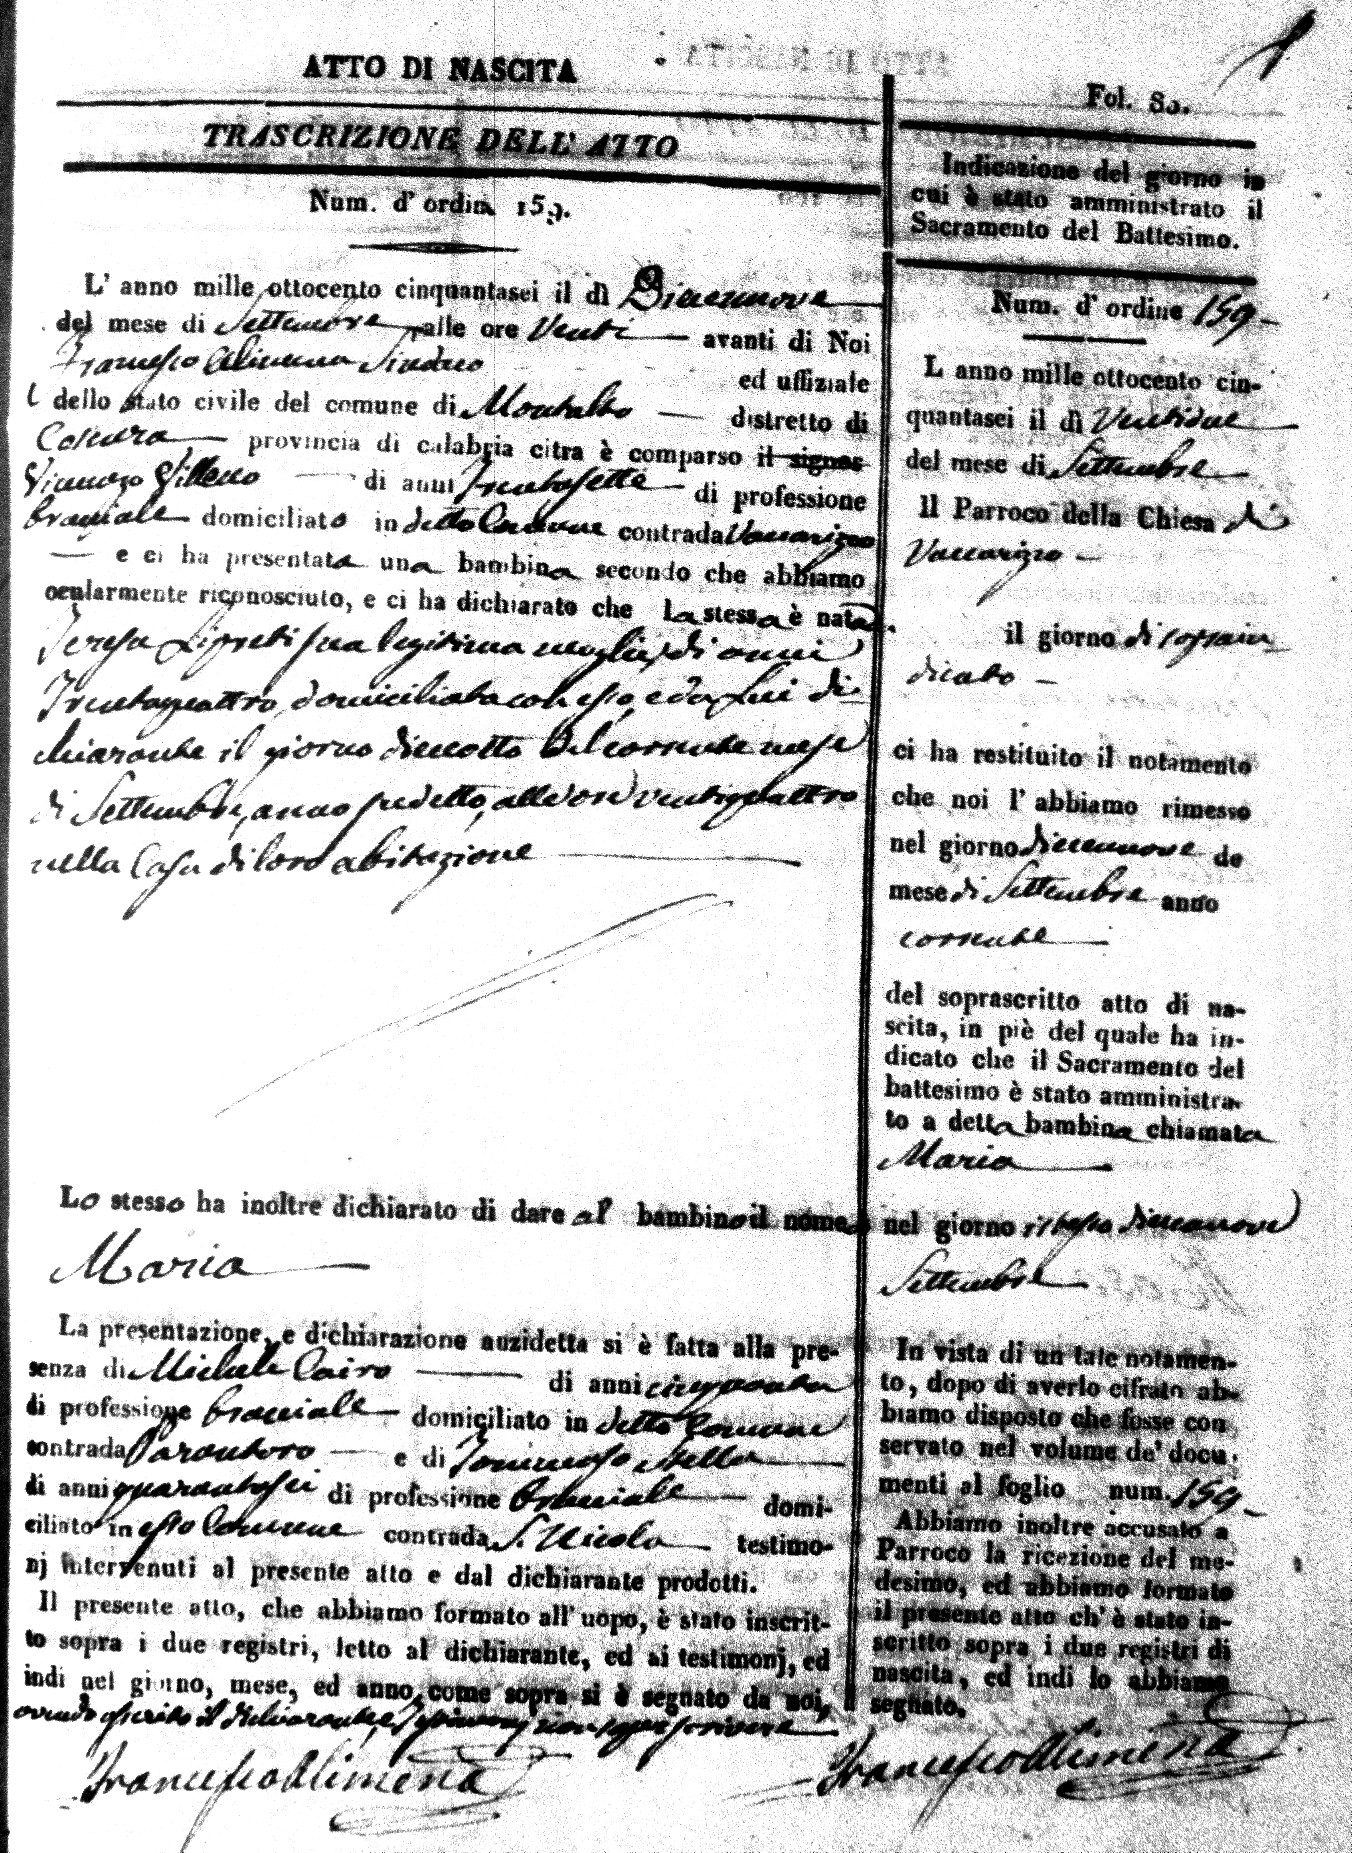 ATTO DI NASCITA
TRASCRIZIONE DELL' ATTO
Num. d' ordine 159.
L' anno mille ottocento cinquantasei il dì Diecennove
del mese di Settembre alle ore Venti avanti di Noi
Francesco Alimena Sindaco ed uffiziale
dello stato civile del comune di Montalto distretto di
Cosenza provincia di calabria citra è comparso il signor
Vincenzo di anni Trentasette di professione
bracciale domiciliato in detto Comune contrada Vaccarizzo
e ci ha presentata una bambina secondo che abbiamo
ocularmente riconosciuto, e ci ha dichiarato che la stessa è nata da
Teresa sua legittima moglie, di anni
Trentaquattro, domiciliata con esso, e da Lui di-
chiarante il giorno dieciotto del corrente mese
di Settembre, anno sudetto, alle ore ventiquattro
nella Casa di loro abitazione
Lo stesso ha inoltre dichiarato di dare al bambino il nome
Maria
La presentazione, e dichiarazione anzidetta si è fatta alla pre-
senza di Michele Cairo di anni cinquanta
di professione bracciale domiciliato in detto Comune
contrada Parantoro e di Tommaso Stella
di anni quarantasei di professione bracciale domi-
ciliato in esso Comune contrada S. Nicola testimo-
nj intervenuti al presente atto e dal dichiarante prodotti.
Il presente atto, che abbiamo formato all' uopo, è stato inscrit-
to sopra i due registri, letto al dichiarante, ed ai testimonj, ed
indi nel giorno, mese, ed anno, come sopra si è segnato da noi,
avendo asserito il dichiarante, e testimonj non saper scrivere
Francesco Alimena
Fol. 80.
Indicazione del giorno in
cui è stato amministrato il
Sacramento del Battesimo.
Num. d' ordine 159
L anno mille ottocento cin-
quantasei il dì Ventidue
del mese di Settembre
Il Parroco della Chiesa di
Vaccarizzo
il giorno di soprain-
dicato
ci ha restituito il notamento
che noi l' abbiamo rimesso
nel giorno diecennove de
mese di Settembre anno
corrente
del soprascritto atto di na-
scita, in piè del quale ha in-
dicato che il Sacramento del
battesimo è stato amministra-
to a detta bambina chiamata
Maria
nel giorno istesso diecennove
Settembre
In vista di un tale notamen-
to, dopo di averlo cifrato ab-
biamo disposto che fosse con
servato nel volume de' docu-
menti al foglio num. 159
Abbiamo inoltre accusato a
Parroco la ricezione del me-
desimo, ed abbiamo formato
il presente atto ch' è stato in-
scritto sopra i due registri di
nascita, ed indi lo abbiamo
segnato.
Francesco Alimena